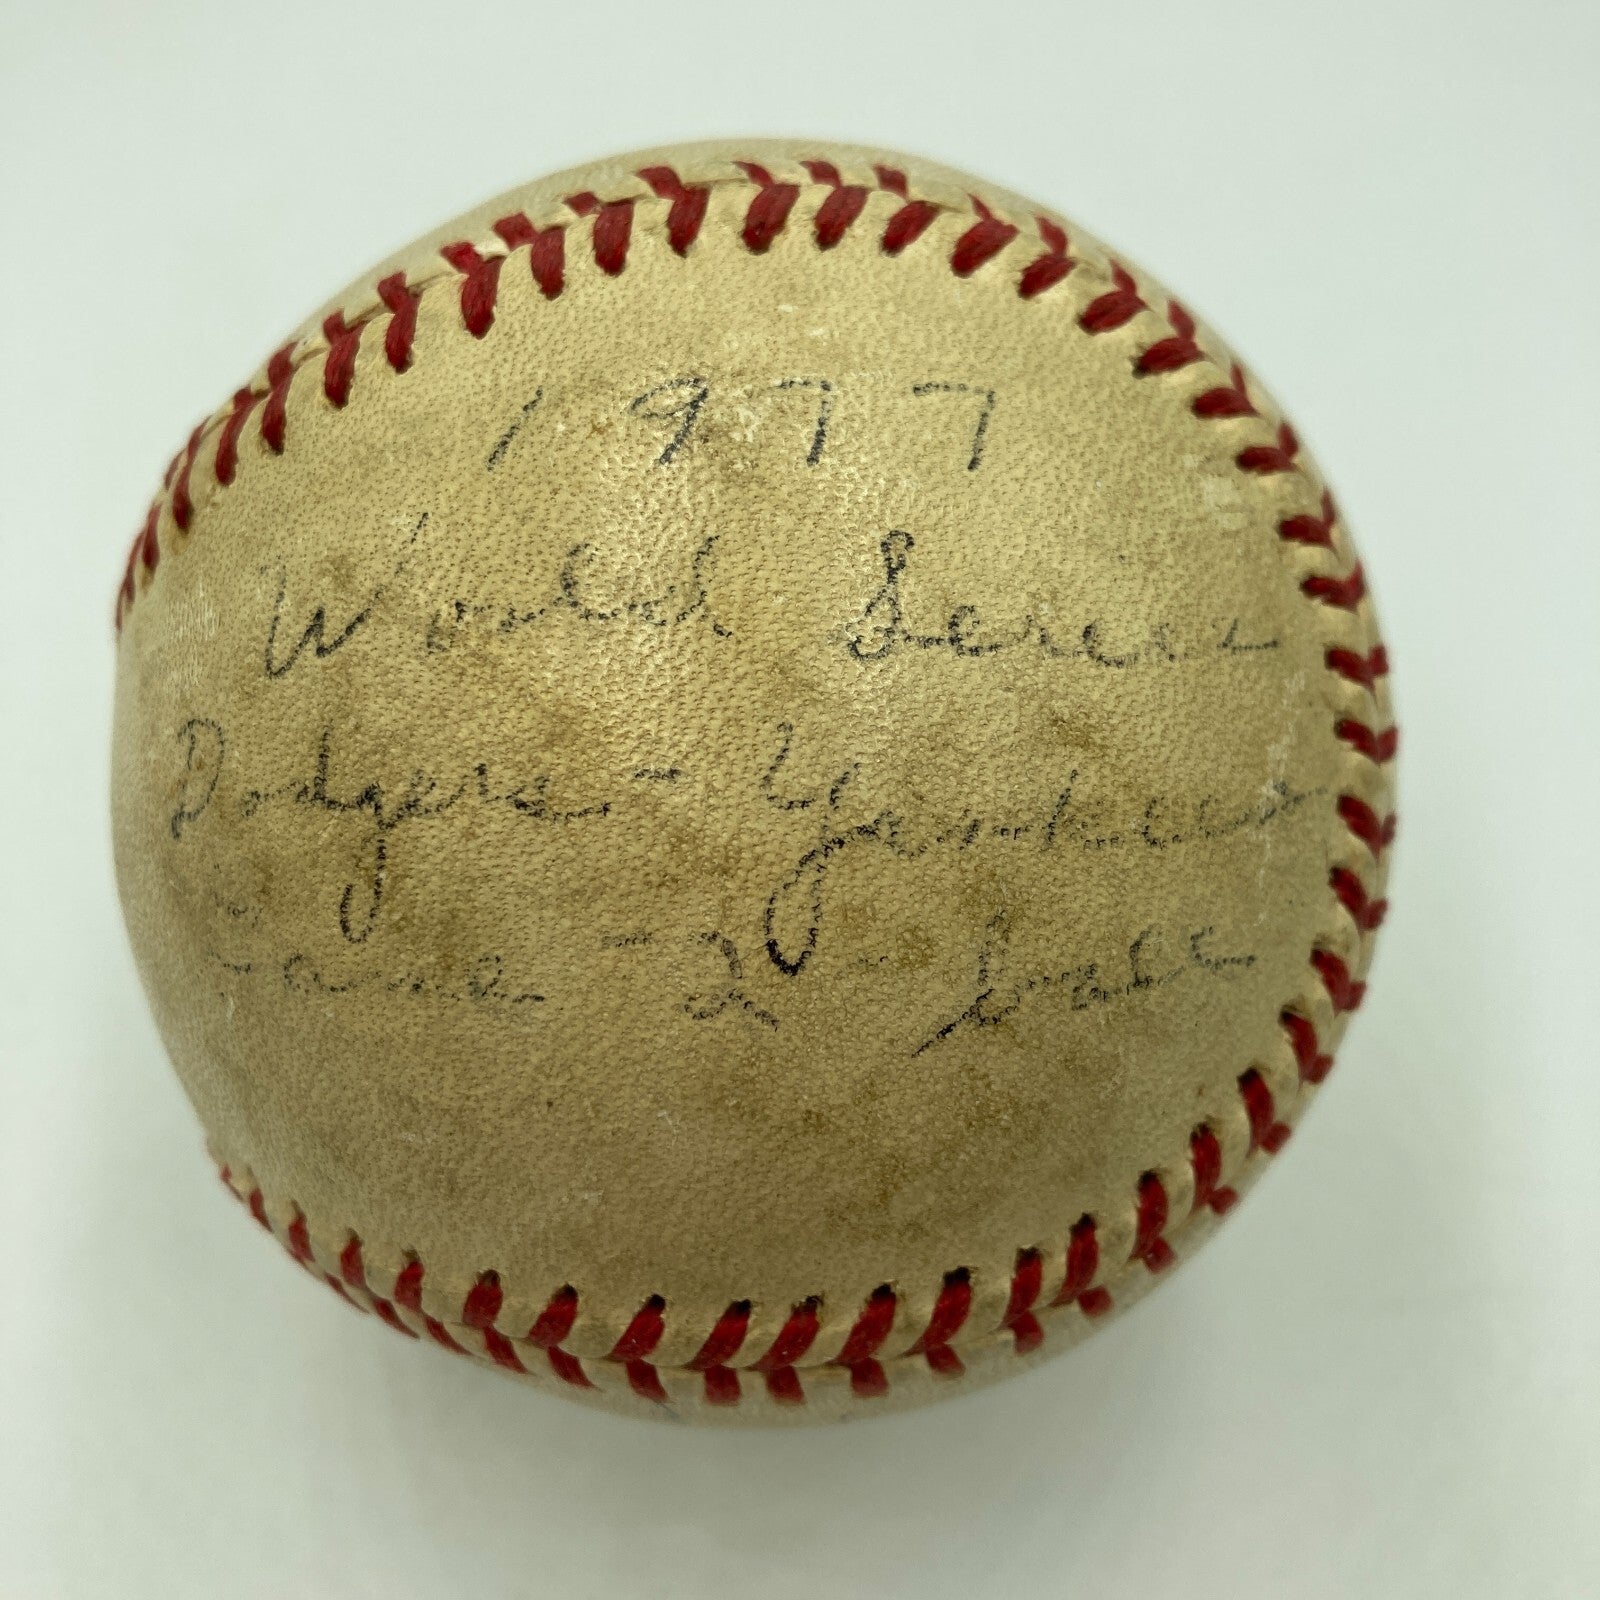 1977
World Series
Dodgers - Yankees
Game - 2 - base